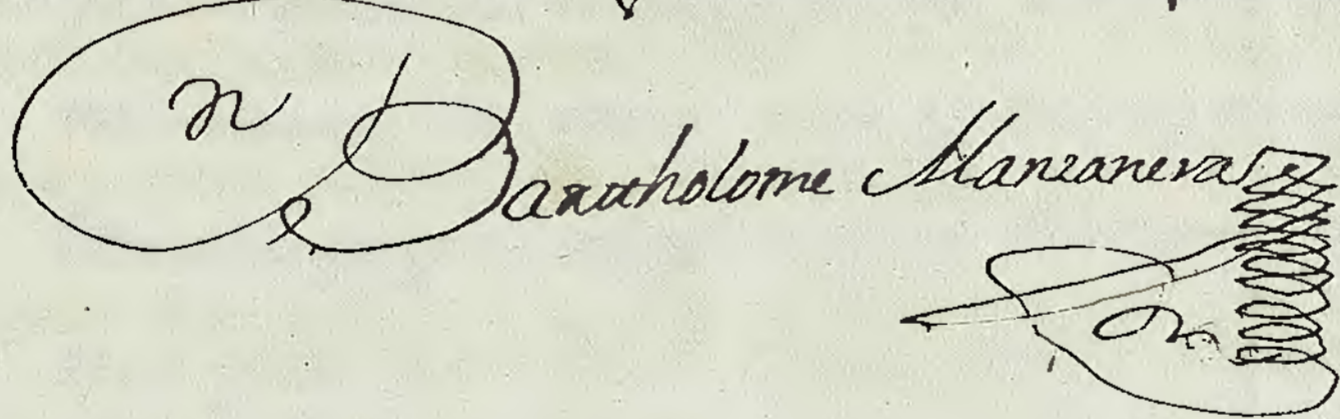 Bartholome Manzanera